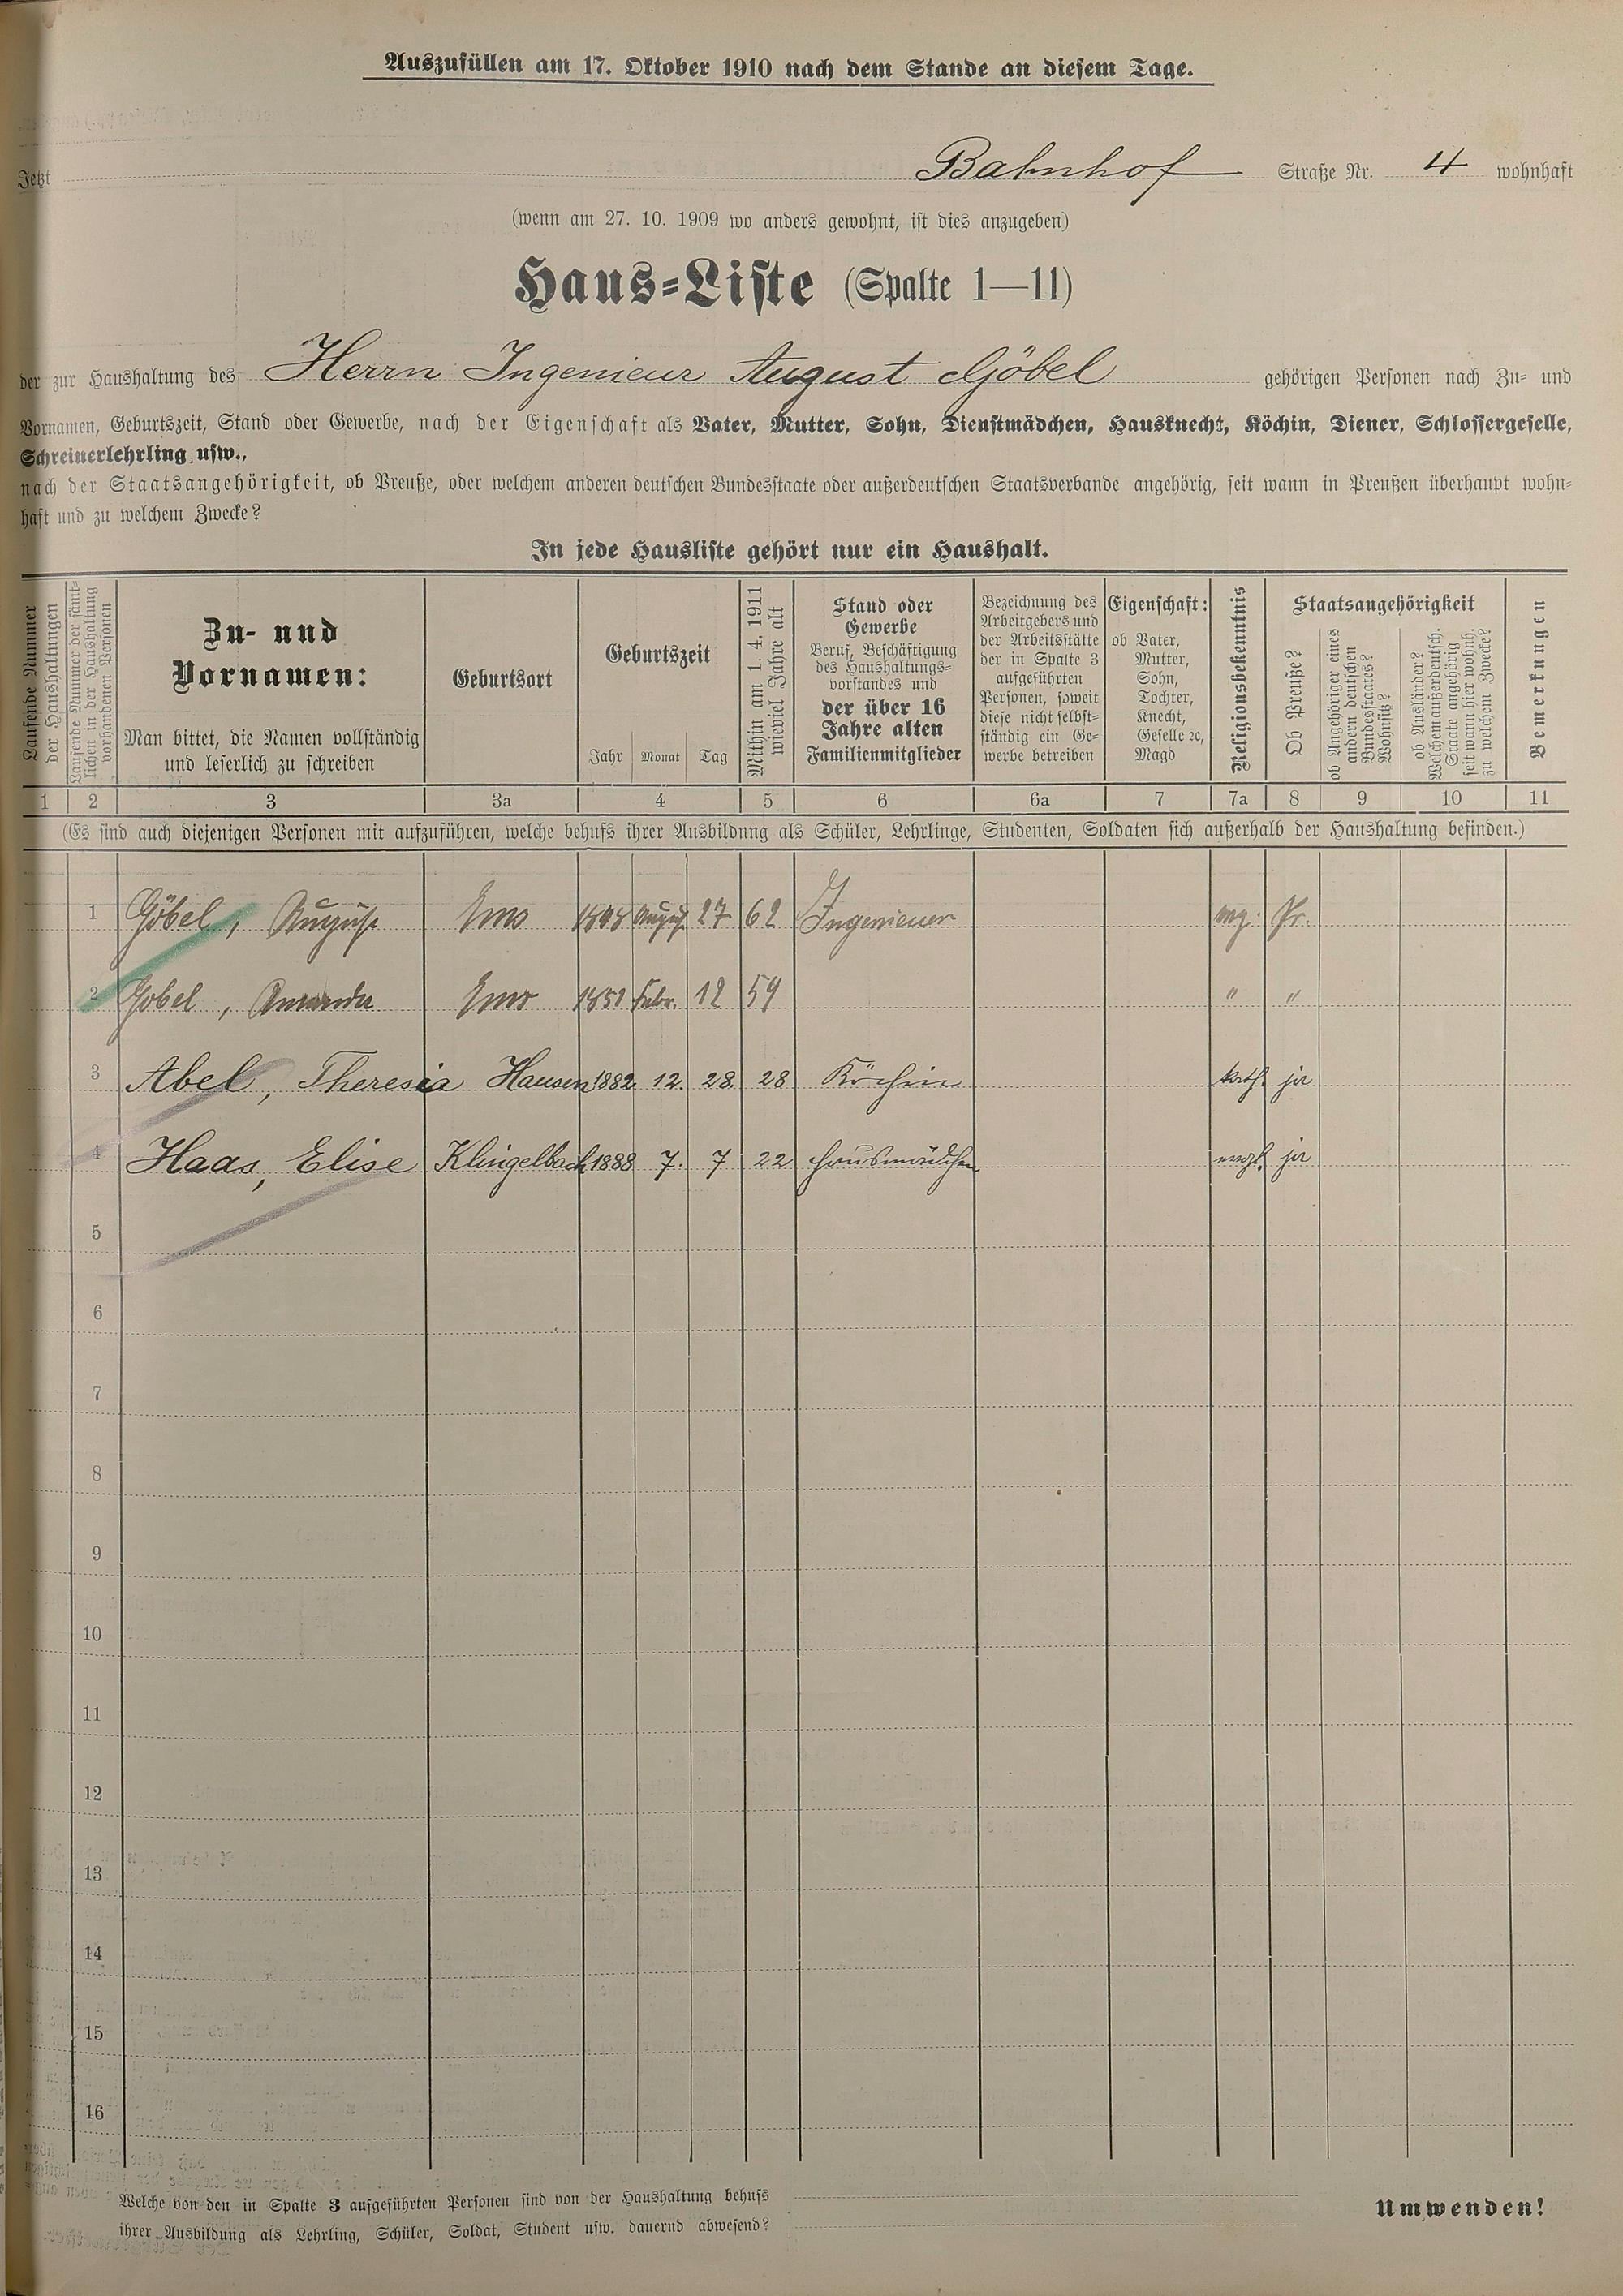 Auszufüllen am 17. Oktober 1910 nach dem Stande an diesem Tage.
Jetzt Bahnhof Straße Nr. 4 wohnhaft
(wenn am 27. 10. 1909 wo anders gewohnt, ist dies anzugeben)
Haus=Liste (Spalte 1—11)
der zur Haushaltung des Herrn Ingenieur August Göbel gehörigen Personen nach Zu= und
Vornamen, Geburtszeit, Stand oder Gewerbe, nach der Eigenschaft als Vater, Mutter, Sohn, Dienstmädchen, Hausknecht, Köchin, Diener, Schlossergeselle,
Schreinerlehrling usw.,
nach der Staatsangehörigkeit, ob Preuße, oder welchem anderen deutschen Bundesstaate oder außerdeutschen Staatsverbande angehörig, seit wann in Preußen überhaupt wohn=
haft und zu welchem Zwecke?
In jede Hausliste gehört nur ein Haushalt.
Laufende Nummer
der Haushaltungen
Laufende Nummer der sämt=
lichen in der Haushaltung
vorhandenen Personen
Zu- und
Vornamen:
Man bittet, die Namen vollständig
und leserlich zu schreiben
Geburtsort
Geburtszeit
Jahr Monat Tag
Mithin am 1. 4. 1911
wieviel Jahre alt
Stand oder
Gewerbe
Beruf, Beschäftigung
des Haushaltungs=
vorstandes und
der über 16
Jahre alten
Familienmitglieder
Bezeichnung des
Arbeitgebers und
der Arbeitsstätte
der in Spalte 3
aufgeführten
Personen, soweit
diese nicht selbst=
ständig ein Ge=
werbe betreiben
Eigenschaft:
ob Vater,
Mutter,
Sohn,
Tochter,
Knecht,
Geselle ec,
Magd
Religionsbekenntnis
Staatsangehörigkeit
Ob Preuße?
ob Angehöriger eines
andern deutschen
Bundesstaates?
Wohnsitz?
ob Ausländer?
Welchem außerdeutsch.
Staate angehörig
seit wann hier wohnh.
zu welchen Zwecke?
Bemerkungen
1 2 3 3a 4 5 6 6a 7 7a 8 9 10 11
(Es sind auch diejenigen Personen mit aufzuführen, welche behufs ihrer Ausbildung als Schüler, Lehrlinge, Studenten, Soldaten sich außerhalb der Haushaltung befinden.)
1 Göbel, August Ems 1848 August 27 62 Ingenieur evg. Pr.
2 Göbel, Amanda Ems 1852 Febr. 12 59 " "
3 Abel, Theresia Hausen 1882 12. 28. 28 Köchin kath. ja
4 Haas, Elise Klingelbach 1888 7. 7 22 Hausmädchen evgl. ja
5
6
7
8
9
10
11
12
13
14
15
16
Welche von den in Spalte 3 aufgeführten Personen sind von der Haushaltung behufs
ihrer Ausbildung als Lehrling, Schüler, Soldat, Student usw. dauernd abwesend?
Umwenden!